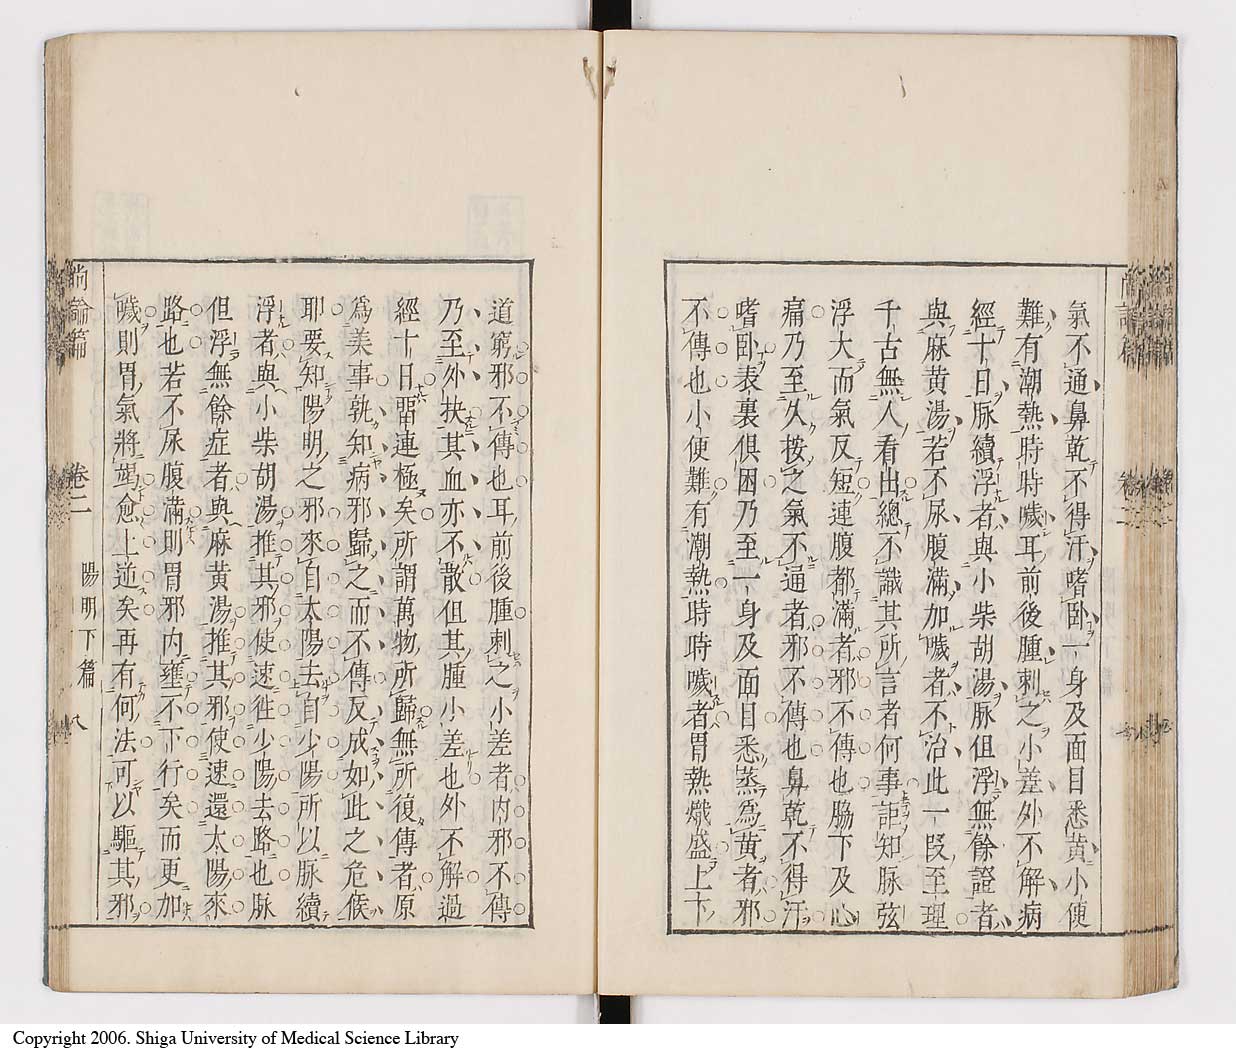 氣不通鼻乾不得汗嗜卧一身及面目悉黃小便
難有潮熱時時噦耳前後腫刺之小差外不解病
經十日脉續浮者與小柴胡湯脉但浮無餘證者
與麻黃湯若不尿腹滿加噦者不治此一段至理
千古無人看出總不識其所言者何事詎知脉弦
浮大而氣反短連腹都滿者邪不傳也脇下及心
痛乃至久按之氣不通者邪不傳也鼻乾不得汗
嗜卧表裏俱困乃至一身及面目悉蒸爲黃者邪
不傳也小便難有潮熱時時噦者胃熱熾盛上下
道窮邪不傳也耳前後腫刺之小差者內邪不傳
乃至外挾其血亦不散但其腫小差也外不解過
經十日留連極矣所謂萬物所歸無所復傳者原
爲美事孰知病邪歸之而不傳反成如此之危候
耶要知陽明之邪來自太陽去自少陽所以脉續
浮者與小柴胡湯推其邪使速徃少陽去路也脉
但浮無餘症者與麻黃湯推其邪使速還太陽來
路也若不尿腹滿則胃邪內壅不下行矣而更加
噦則胃氣將竭愈上逆矣再有何法可以驅其邪
尚論篇 卷二 陽明下篇 八
Copyright 2006. Shiga University of Medical Science Library